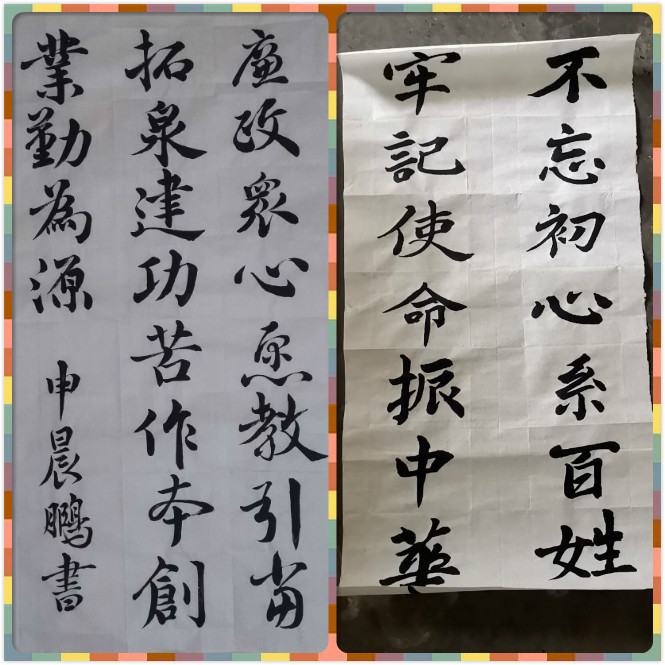 廉政衆心愿教引當
拓泉建功苦作本創
業勤為源
申晨鵬書
不忘初心系百姓
牢記使命振中華